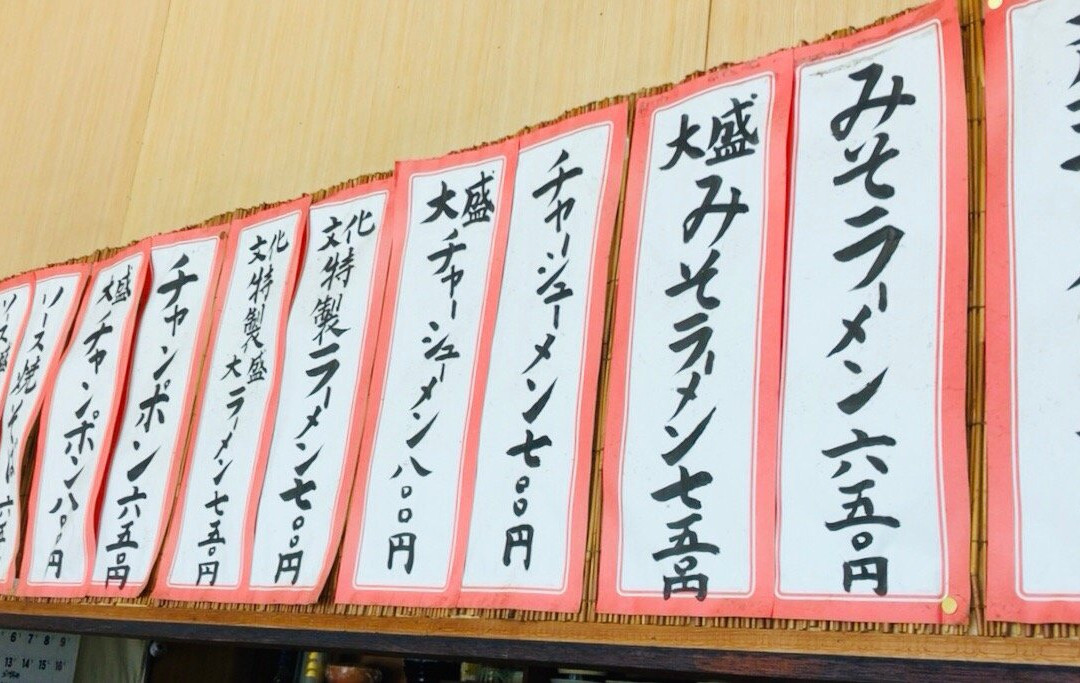 みそラーメン六五〇円
大盛みそラーメン七五〇円
チャーシューメン七〇〇円
大盛チャーシューメン八〇〇円
文化特製ラーメン七〇〇円
文化特製大盛ラーメン七五〇円
チャンポン六五〇円
大盛チャンポン八〇〇円
ソース焼そば六五
6 7 8 9
13 14 15 16